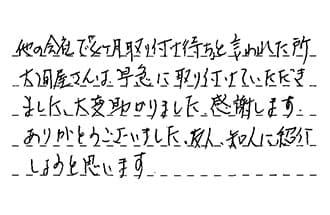 他の会社で2ヶ月取り付け待ちと言われた所
大問屋さんは、早急に取り付けていただき
ました、大変助かりました、感謝します。
ありがとうございました、友人、知人に紹介
しようと思います